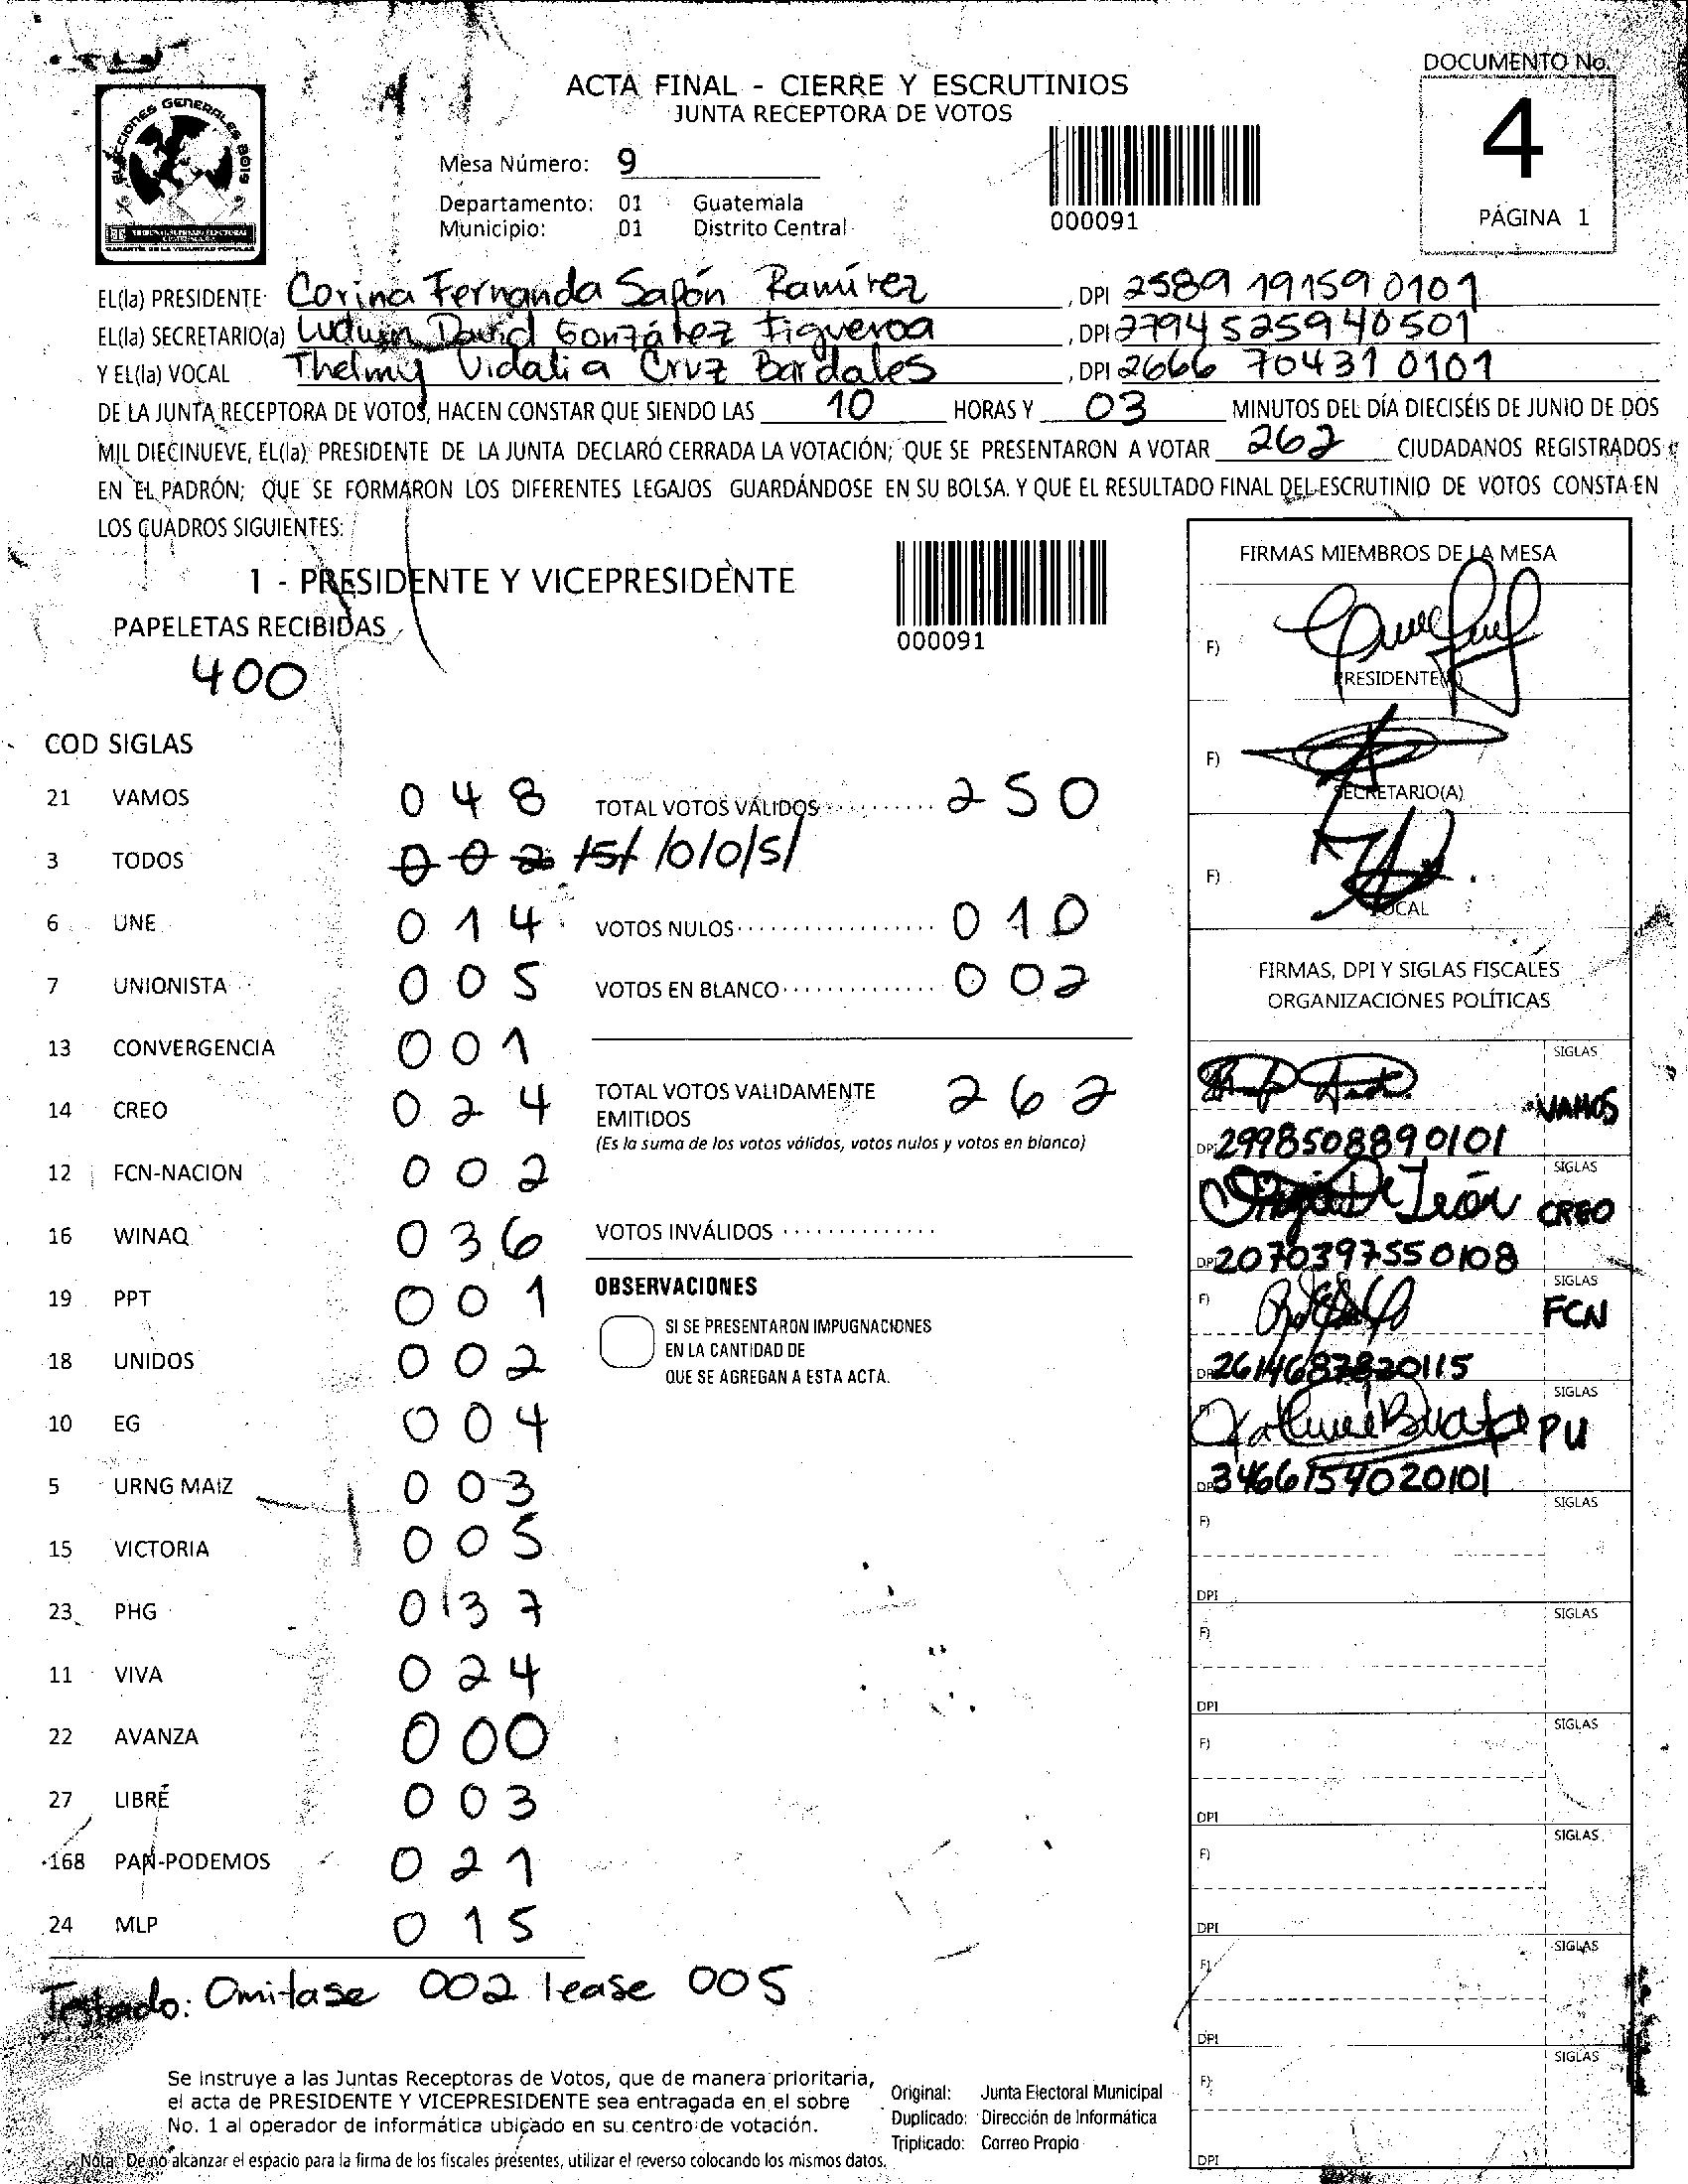 DOCUMENTO No.
4
PÁGINA 1
ELECCIONES GENERALES 2019
ACTA FINAL - CIERRE Y ESCRUTINIOS
JUNTA RECEPTORA DE VOTOS
Mesa Número: 9
Departamento: 01 Guatemala
Municipio: 01 Distrito Central
000091
EL(la) PRESIDENTE Corina Fernanda Sapón Ramírez , DPI 2589 19159 0101
EL(la) SECRETARIO(a) Ludwin David González Figueroa , DPI 2794 52594 0501
Y EL(la) VOCAL Thelmy Vidalia Cruz Bardales , DPI 2666 70431 0101
DE LA JUNTA RECEPTORA DE VOTOS, HACEN CONSTAR QUE SIENDO LAS 10 HORAS Y 03 MINUTOS DEL DÍA DIECISÉIS DE JUNIO DE DOS
MIL DIECINUEVE, EL(la) PRESIDENTE DE LA JUNTA DECLARÓ CERRADA LA VOTACIÓN; QUE SE PRESENTARON A VOTAR 262 CIUDADANOS REGISTRADOS
EN EL PADRÓN; QUE SE FORMARON LOS DIFERENTES LEGAJOS GUARDÁNDOSE EN SU BOLSA. Y QUE EL RESULTADO FINAL DEL ESCRUTINIO DE VOTOS CONSTA EN
LOS CUADROS SIGUIENTES:
1 - PRESIDENTE Y VICEPRESIDENTE
000091
PAPELETAS RECIBIDAS
400
COD SIGLAS
21 VAMOS 048
3 TODOS 002 /5/ /0/0/5/
6 UNE 014
7 UNIONISTA 005
13 CONVERGENCIA 001
14 CREO 024
12 FCN-NACION 002
16 WINAQ 036
19 PPT 001
18 UNIDOS 002
10 EG 004
5 URNG MAIZ 003
15 VICTORIA 005
23 PHG 037
11 VIVA 024
22 AVANZA 000
27 LIBRE 003
168 PAN-PODEMOS 021
24 MLP 015
Testado: Omitase 002 lease 005
TOTAL VOTOS VÁLIDOS 250
VOTOS NULOS 010
VOTOS EN BLANCO 002
TOTAL VOTOS VALIDAMENTE
EMITIDOS 262
(Es la suma de los votos válidos, votos nulos y votos en blanco)
VOTOS INVÁLIDOS
OBSERVACIONES
SI SE PRESENTARON IMPUGNACIONES
EN LA CANTIDAD DE
QUE SE AGREGAN A ESTA ACTA.
FIRMAS MIEMBROS DE LA MESA
F)
PRESIDENTE(A)
F)
SECRETARIO(A)
F)
VOCAL
FIRMAS, DPI Y SIGLAS FISCALES
ORGANIZACIONES POLÍTICAS
SIGLAS
VAMOS
DPI 2998508890101
SIGLAS
CREO
DPI 2070397550108
SIGLAS
F)
FCN
DPI 2614687820115
SIGLAS
PU
DPI 3466154020101
SIGLAS
F)
DPI
SIGLAS
F)
DPI
SIGLAS
F)
DPI
SIGLAS
F)
DPI
SIGLAS
F)
DPI
SIGLAS
F)
DPI
Se instruye a las Juntas Receptoras de Votos, que de manera prioritaria,
el acta de PRESIDENTE Y VICEPRESIDENTE sea entragada en el sobre
No. 1 al operador de informática ubicado en su centro de votación.
Original: Junta Electoral Municipal
Duplicado: Dirección de Informática
Triplicado: Correo Propio
Nota: De no alcanzar el espacio para la firma de los fiscales presentes, utilizar el reverso colocando los mismos datos.